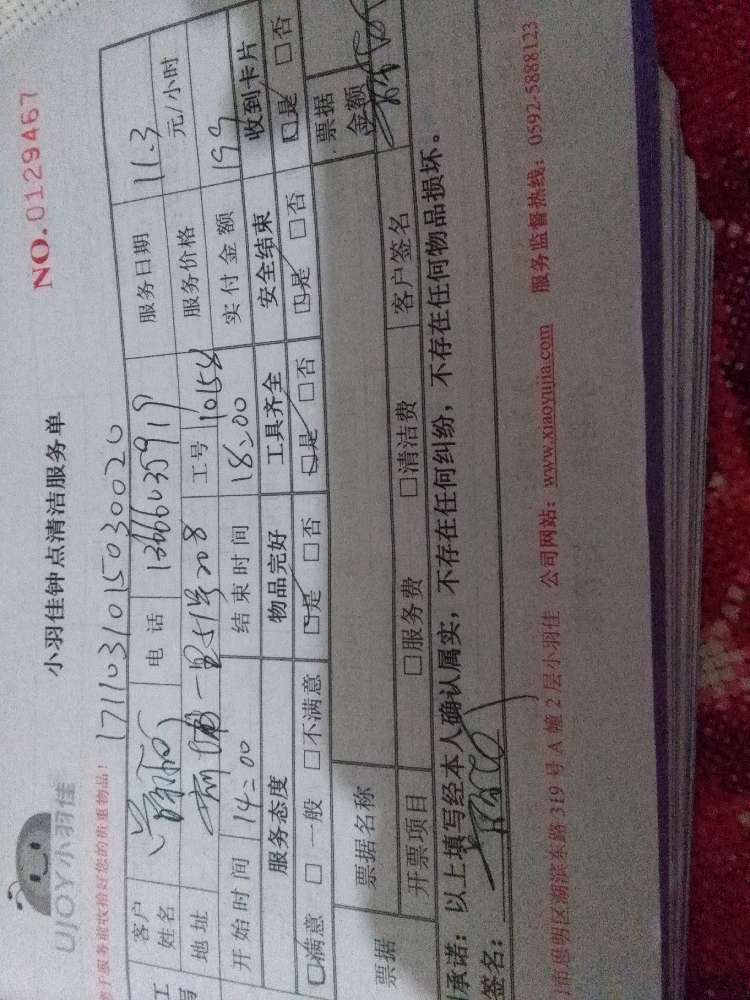 UJOY小羽佳
小羽佳钟点清洁服务单
NO.0129467
于服务前收拾好您的贵重物品!
1711031015030020
客户姓名
电话
服务日期 11.3
地址
一里51号208
工号
服务价格
元/小时
开始时间 14:00
结束时间 18:00
实付金额 199
服务态度
物品完好
工具齐全
安全结束
收到卡片
□满意 □一般 □不满意
□是 □否
□是 □否
□是 □否
□是 □否
票据
票据名称
票据金额
开票项目
□服务费
□清洁费
客户签名
承诺：以上填写经本人确认属实，不存在任何纠纷，不存在任何物品损坏。
签名：
市思明区湖滨东路 319 号 A 幢 2 层小羽佳 公司网站：www.xiaoyujia.com 服务监督热线：0592-5888123